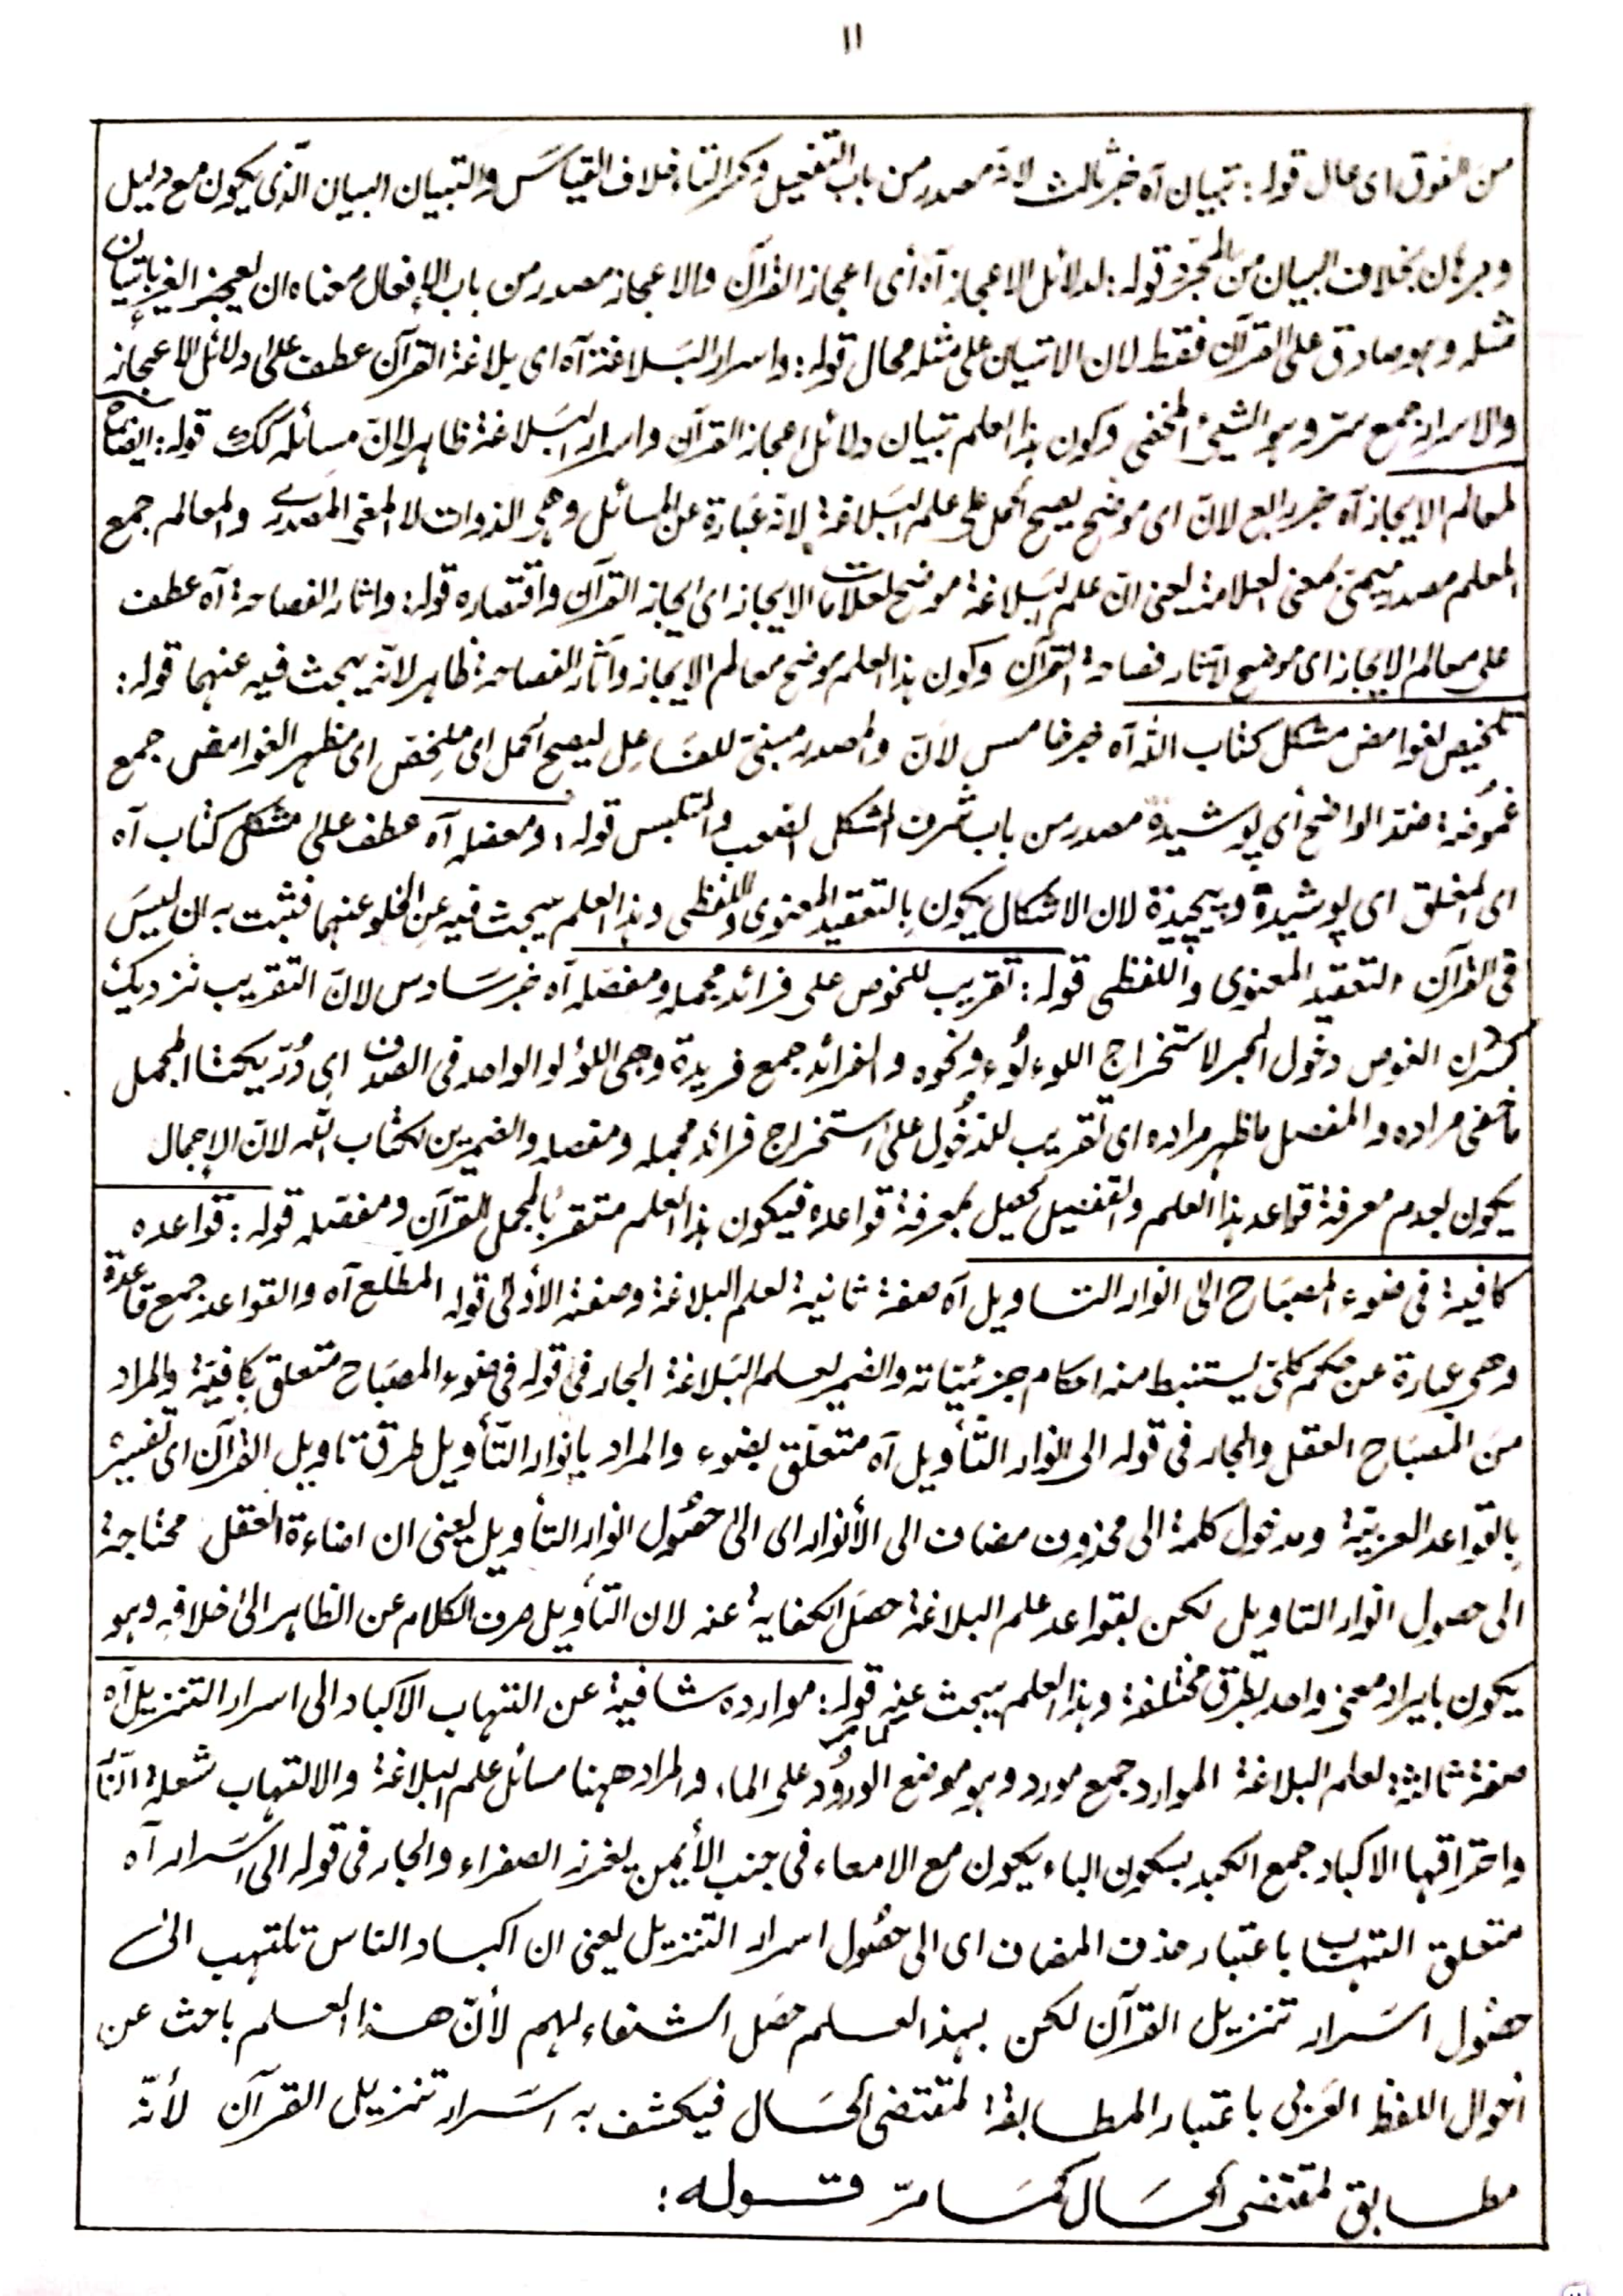 ١١
من الفوق ای عال قوله: تبیان آه خبر ثالث لانه مصدر من باب التفعیل وکسر التاء خلاف القیاس والتبیان البیان الّذی یکون مع دلیل
وبرهان بخلاف البیان من المجرّد قوله: لدلائل الاعجاز آه أی اعجاز القرآن والاعجاز مصدر من باب الإفعال معناه ان یعجز الغیر باتیان
مثله وهو صادق علی القرآن فقط لان الاتیان علی مثله محال قوله: واسرار البَلاغة آه ای بلاغة القرآن عطف علی دلائل الاعجاز
والاسرار جمع سرّ وهو الشیئ المخفی وکون هذا العلم تبیان دلائل اعجاز القرآن واسرار البَلاغة ظاهر لانّ مسائله کک قوله: ایضاح
لمعالم الایجاز آه خبر رابع لانّ ای موضح یصح الحمل علی علم البَلاغة لانه عبارة عن المسائل وهی الذوات لا المعنی المصدری والمعالم جمع
المعلم مصدر میمی بمعنی العلامة یعنی انّ علم البَلاغة موضح لعلامات الایجاز ای ایجاز القرآن واقتصاره قوله: واثار الفصاحة آه عطف
علی معالم الایجاز ای موضح لآثار فصاحة القرآن وکون هذا العلم موضح معالم الایجاز وآثار الفصاحة ظاهر لانّه یبحث فیه عنهما قوله:
تلخیص لغوامض مشکل کتاب الله آه خبر خامس لانّ والمصدر مبنی للفَاعِل لیصح الحمل ای ملخّص ای مظهر الغوامض جمع
غموضة ضد الواضح أی پوشیدة مصدر من باب شرف المشکل الصعب والمتلبس قوله: ومعضله آه عطف علی مشکل کتاب آه
ای المغلق ای پوشیدة وپیچیدة لان الاشکال یکون بالتعقید المعنوی واللفظی وهذا العلم یبحث فیه عن الخلو عنهما فثبت به ان لیسَ
فی القرآن التعقید المعنوی واللفظی قوله: تقریب للغوص علی فرائد مجمله ومفصّله آه خبر سَادس لانّ التقریب نزدیک
کردن الغوص دخول البحر لاستخراج اللوءلُوء ونحوه والفرائد جمع فریدة وهی اللؤلو الواحد فی الصدف ای دُرّ یکتا المجمل
ما خفی مراده والمفصل ما ظهر مراده ای تقریب للدخُول علی استخراج فرائد مجمله ومفصله والضمیرین لکتاب الله لانّ الإجمال
یکون لعدم معرفة قواعد هذا العلم والتفصیل یحصل بمعرفة قواعده فیکون هذا العلم متقرباً لمجمل القرآن ومفصّله قوله: قواعده
کافیة فی ضوء المصبَاح الی انوار التاویل آه صفة ثانیة لعلم البلاغة وصفته الأولی قوله المطلع آه والقواعد جمع قاعدة
وهی عبارة عن حکم کلّی یستنبط منه احکام جزئیّاته والضمیر لعلم البَلاغة الجار فی قوله فی ضوء المصبَاح متعلق بکافیَة والمراد
منَ المصبَاح العقل والجار فی قوله الی انوار التَّأویل آه متعلّق بضوء والمراد بانوار التّأویل طرق تاویل القرآن ای تفسیره
بالقواعد العربیّة ومدخول کلمة الی محذوف مضاف الی الأنوار ای الی حصُول انوار التأویل یعنی ان اضاءة العقل محتاجة
الی حصول انوار التاویل لکن بقواعد علم البلاغة حصَل الکفایة عنه لان التأویل صرف الکلام عن الظاهر الی خلافه وهو
یکون بایراد معنی واحد بطرق مختلفة وهذا العلم یبحث عنه کما مر قوله: موارده شافیة عن التهاب الاکباد الی اسرار التنزیل آه
صفة ثالثة لعلم البلاغة الموارد جمع مورد وهو موضع الورُود علی الماء والمراد ههنا مسائل علم البلاغة والالتهاب شعلة النّار
واحتراقها الاکباد جمع الکبد بسکون الباء یکون مع الامعاء فی جنب الأیمن یغرز الصفراء والجار فی قوله الی اسَرار آه
متعلق التهاب باعتبار حذف المضاف ای الی حصُول اسرار التنزیل یعنی ان اکباد الناس تلتهب الی
حصُول اسَرار تنزیل القرآن لکن بهذ العلم حصَل الشفاء لهم لأنّ هذا العلم باحث عن
احوال اللفظ العَربی باعتبار المطابقة لمقتضی الحَال فیکشف به اسَرار تنزیل القرآن لأنّه
مطابق لمقتضی الحَال کمَا مرّ قوله: